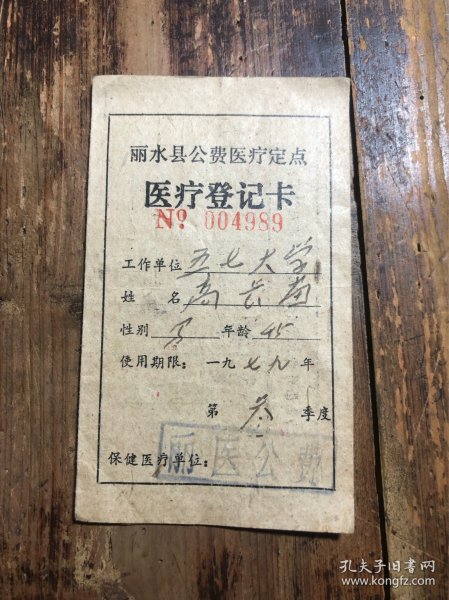 丽水县公费医疗定点
医疗登记卡
№ 004989
工作单位 五七大学
姓 名 高长
性别 男 年龄 45
使用期限：一九七九年
第 叁 季度
保健医疗单位：丽医公费
孔夫子旧书网
www.kongfz.com